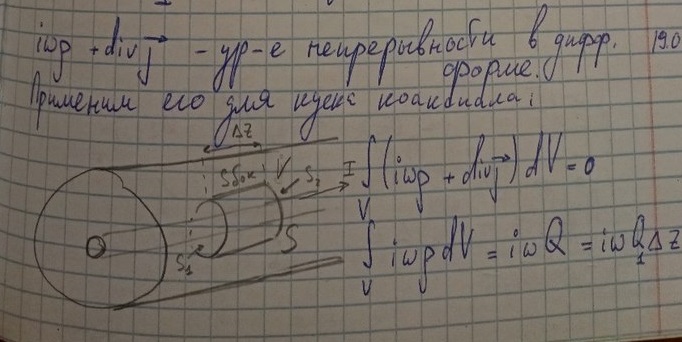 iωρ + div j⃗ - ур-е непрерывности в дифф. 19.0
форме.
Применим его для куска коаксиала:
ΔZ
Sбок V S₂ I
∫ᵥ (iωρ + div j⃗) dV = 0
S₁ S
∫ᵥ iωρ dV = iωQ = iωQ₁ΔZ